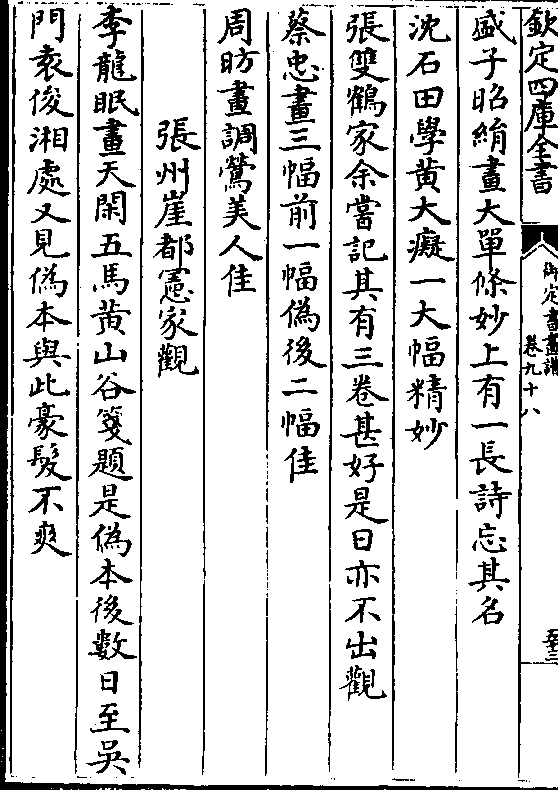 欽定四庫全書
御定書畫譜
卷九十八
盛子昭絹畫大單條妙上有一長詩忘其名
沈石田學黄大癡一大幅精妙
張雙鶴家余嘗記其有三卷甚好是日亦不出觀
蔡忠畫三幅前一幅偽後二幅佳
周昉畫調鶯美人佳
張州崖都憲家觀
李龍眠畫天閑五馬黄山谷箋題是偽本後數日至吳
門袁俊湘處又見偽本與此豪髮不爽